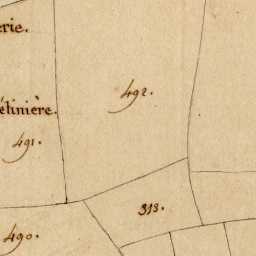 erie.
492.
élinière.
491.
313.
490.